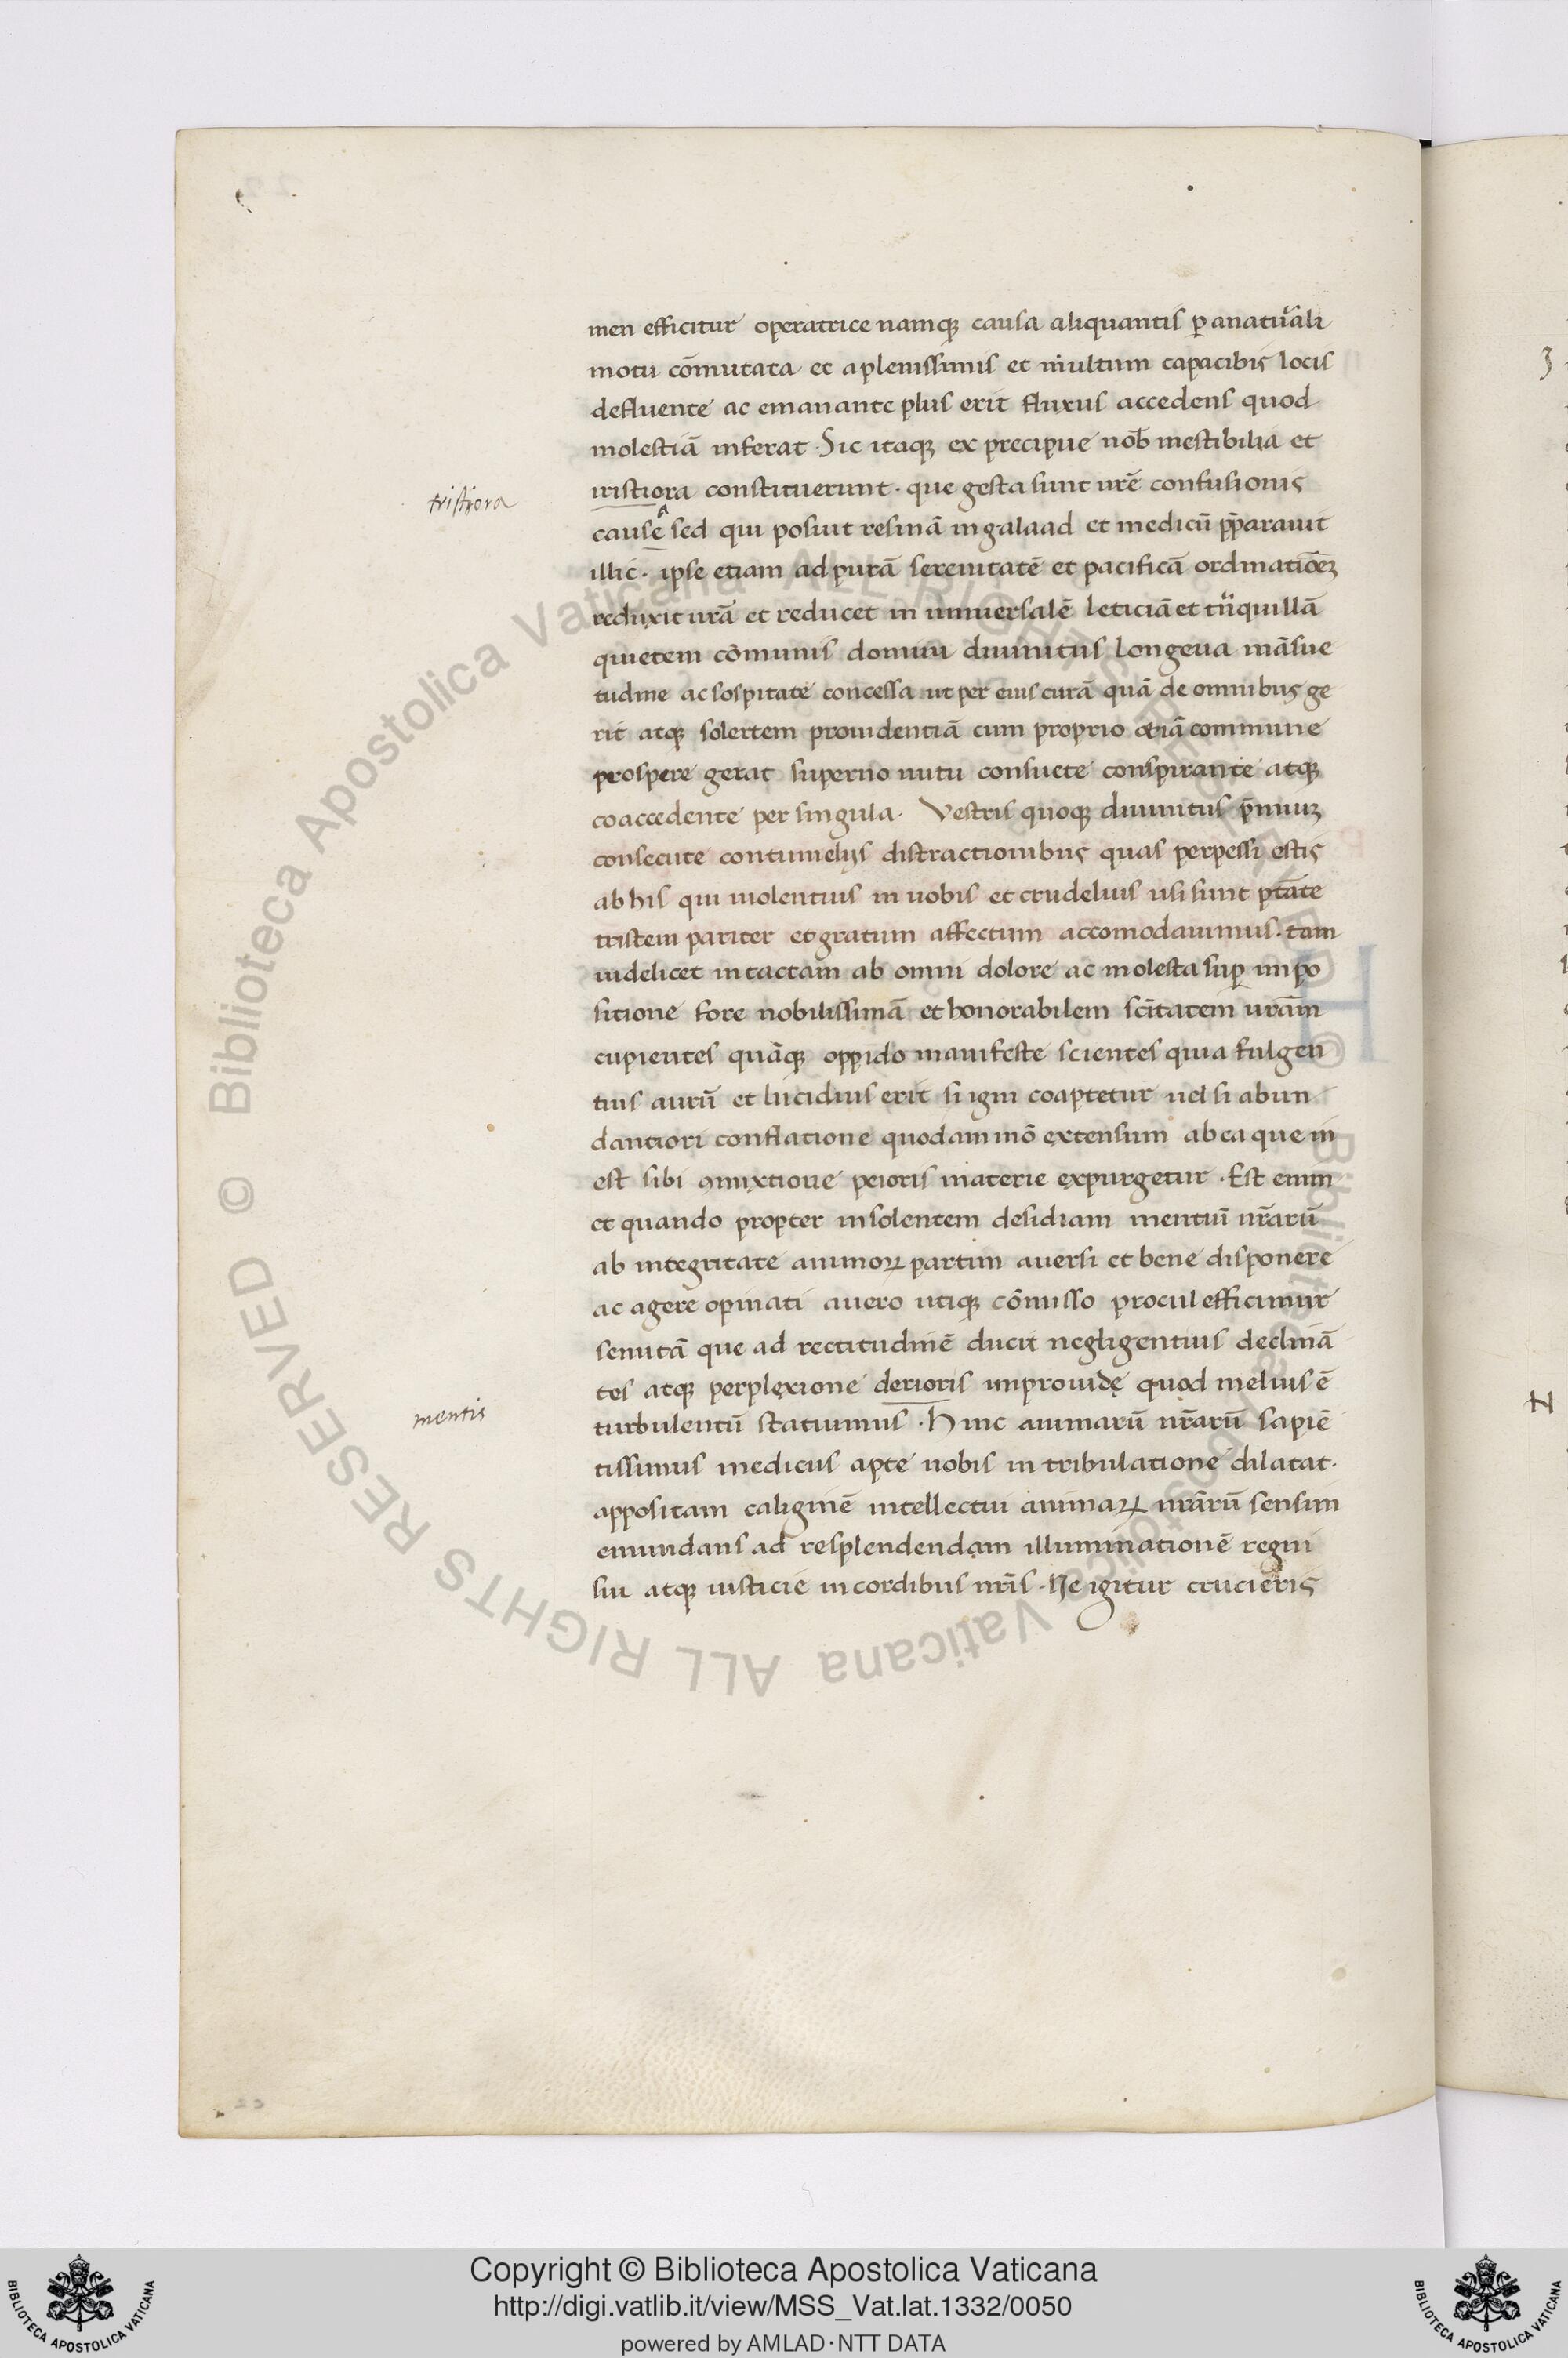 men efficitur operatrice namq; causa aliquantis ꝑ anatu̾ali
motu cōmutata et aplenissimis et multum capacibꝰ locis
defluente ac emanante plus erit fluxus accedens quod
molestiā inferat · Sic itaq; ex precipue nob̄ mestibilia et
tristiora
iristiora constituerunt · que gesta sunt ur̄e confusionis
cause a sed qui posuit resinā ingalaad et medicū p̄parauit
illic · ipse etiam ad purā serenitatē et pacificā ordinatiōeꝫ
reduxit ur̄ā et reducet in uniuersalē leticiā et tⁿquillā
quietem cōmunis domini diuinitus longeua māsue
tudine ac sospitate concessa ut per eius curā quā de omnibus ge
rit atq; solertem prouidentiā cum proprio etiā commune
prospere gerat superno nutu consuete conspirante atq;
coaccedente per singula · Vestris quoq; diuinitus p̄miuꝫ
consecute contumelijs distractionibus quas perpessi estis
ab his qui uiolentius in uobis et crudelius usi sunt ptāte
tristem pariter et gratum affectum accomodauimus · tam
uidelicet intactam ab omni dolore ac molesta suꝑ impo
sitione fore nobilissimā et honorabilem sc̄itatem ur̄am
cupientes quāq; oppido manifeste scientes quia fulgen
tius aurū et lucidius erit si igni coaptetur uel si abun
dantiori conflatione quodammō extensum ab ea que in
est sibi ꝯmixtione peioris materie expurgetur · Est enim
et quando propter insolentem desidiam mentiū nr̄arū
ab integritate animoꝝ partim auersi et bene disponere
ac agere opinati auero utiq; cōmisso procul efficimur
semitā que ad rectitudinē ducit negligentius declinā
tes atq; perplexione derioris improuidę quod melius ē
mentis
turbulentū statuimus · Hinc animarū nr̄arū sapiē
tissimus medicus apte nobis in tribulatione dilatat ·
appositam caliginē intellectui animaꝝ nr̄arū sensim
emundans ad resplendendam illuminationē regni
sui atq; iusticie in cordibus nr̄is · Ne igitur crucieris
Copyright © Biblioteca Apostolica Vaticana
http://digi.vatlib.it/view/MSS_Vat.lat.1332/0050
powered by AMLAD·NTT DATA
© Biblioteca Apostolica Vaticana ALL RIGHTS RESERVED
© Biblioteca Apostolica Vaticana ALL RIGHTS RESERVED
BIBLIOTECA APOSTOLICA VATICANA
BIBLIOTECA APOSTOLICA VATICANA